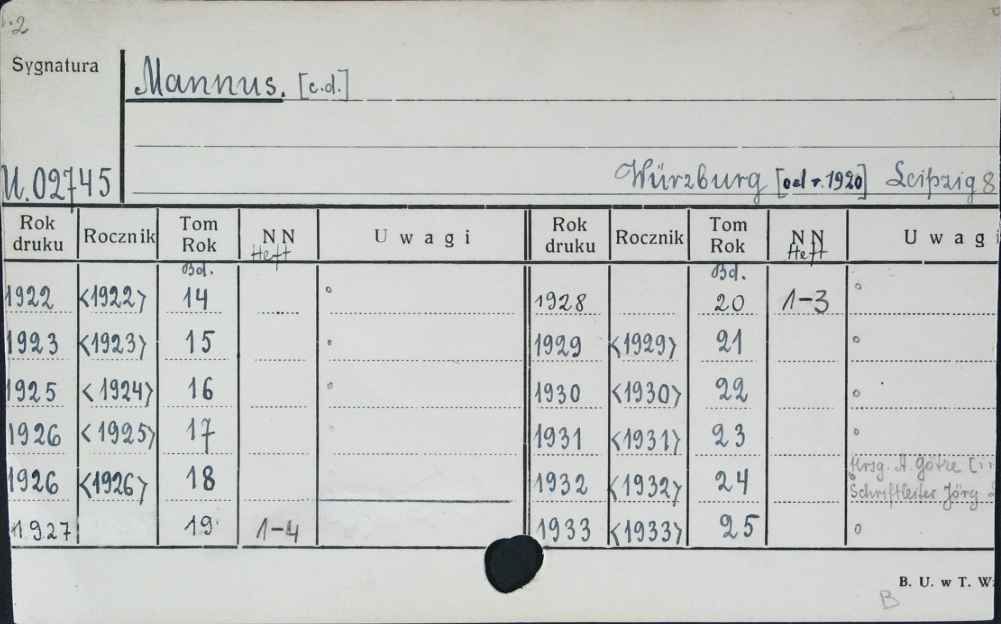 2
Sygnatura
Mannus. [c.d.]
U.02745
Würzburg [od r. 1920] Leipzig 8
Rok druku Rocznik Tom Rok NN Uwagi Rok druku Rocznik Tom Rok NN Uwagi
Bd. Heft Bd. Heft
1922 <1922> 14 1928 20 1-3
1923 <1923> 15 1929 <1929> 21
1925 <1924> 16 1930 <1930> 22
1926 <1925> 17 1931 <1931> 23
1926 <1926> 18 1932 <1932> 24 Hrsg. A. Götze
Schriftleiter Jörg
1927 19 1-4 1933 <1933> 25
B. U. w T. W
B